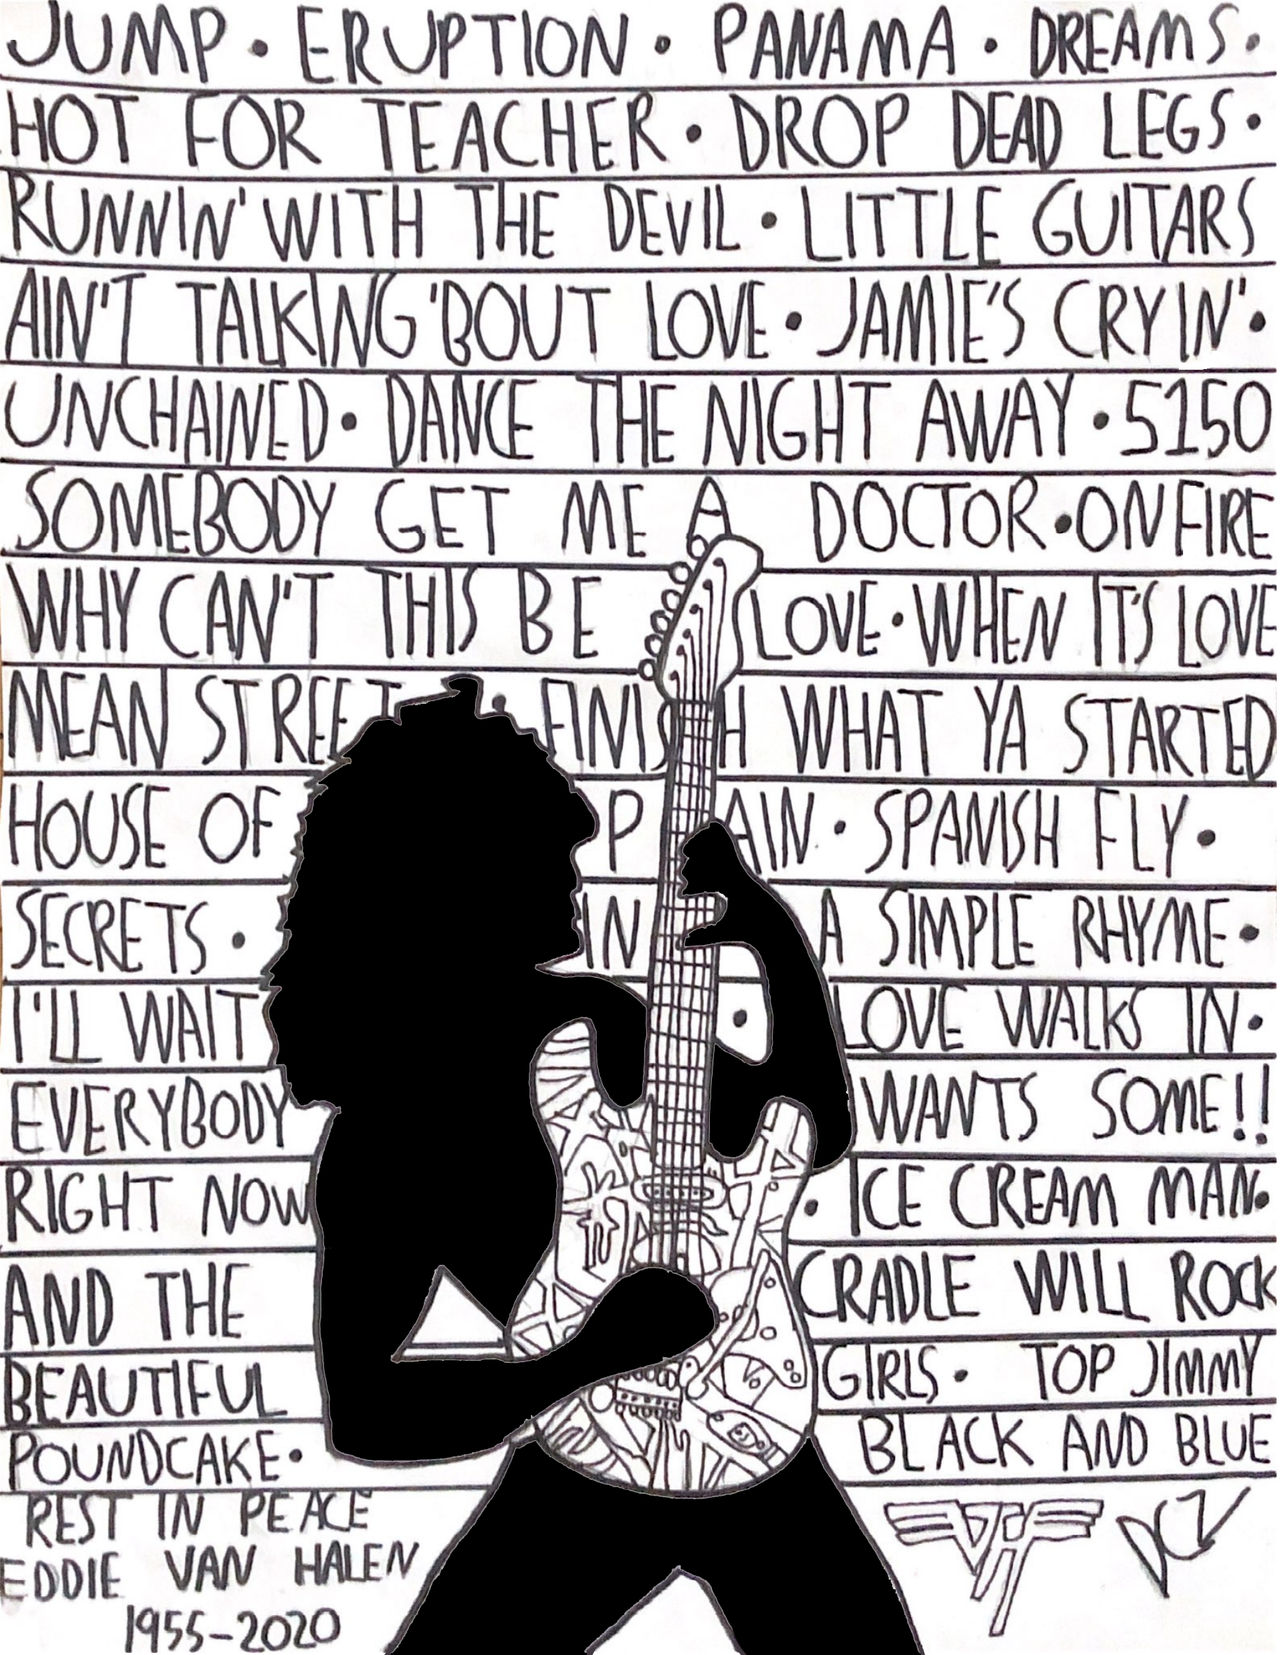 JUMP • ERUPTION • PANAMA • DREAMS •
HOT FOR TEACHER • DROP DEAD LEGS •
RUNNIN' WITH THE DEVIL • LITTLE GUITARS
AIN'T TALKING 'BOUT LOVE • JAMIE'S CRYIN' •
UNCHAINED • DANCE THE NIGHT AWAY • 5150
SOMEBODY GET ME A DOCTOR • ON FIRE
WHY CAN'T THIS BE LOVE • WHEN IT'S LOVE
MEAN STREET • FINISH WHAT YA STARTED
HOUSE OF PAIN • SPANISH FLY •
SECRETS • IN A SIMPLE RHYME •
I'LL WAIT • LOVE WALKS IN •
EVERYBODY WANTS SOME!!
RIGHT NOW • ICE CREAM MAN •
AND THE CRADLE WILL ROCK
BEAUTIFUL GIRLS • TOP JIMMY
POUNDCAKE • BLACK AND BLUE
REST IN PEACE
EDDIE VAN HALEN
1955-2020